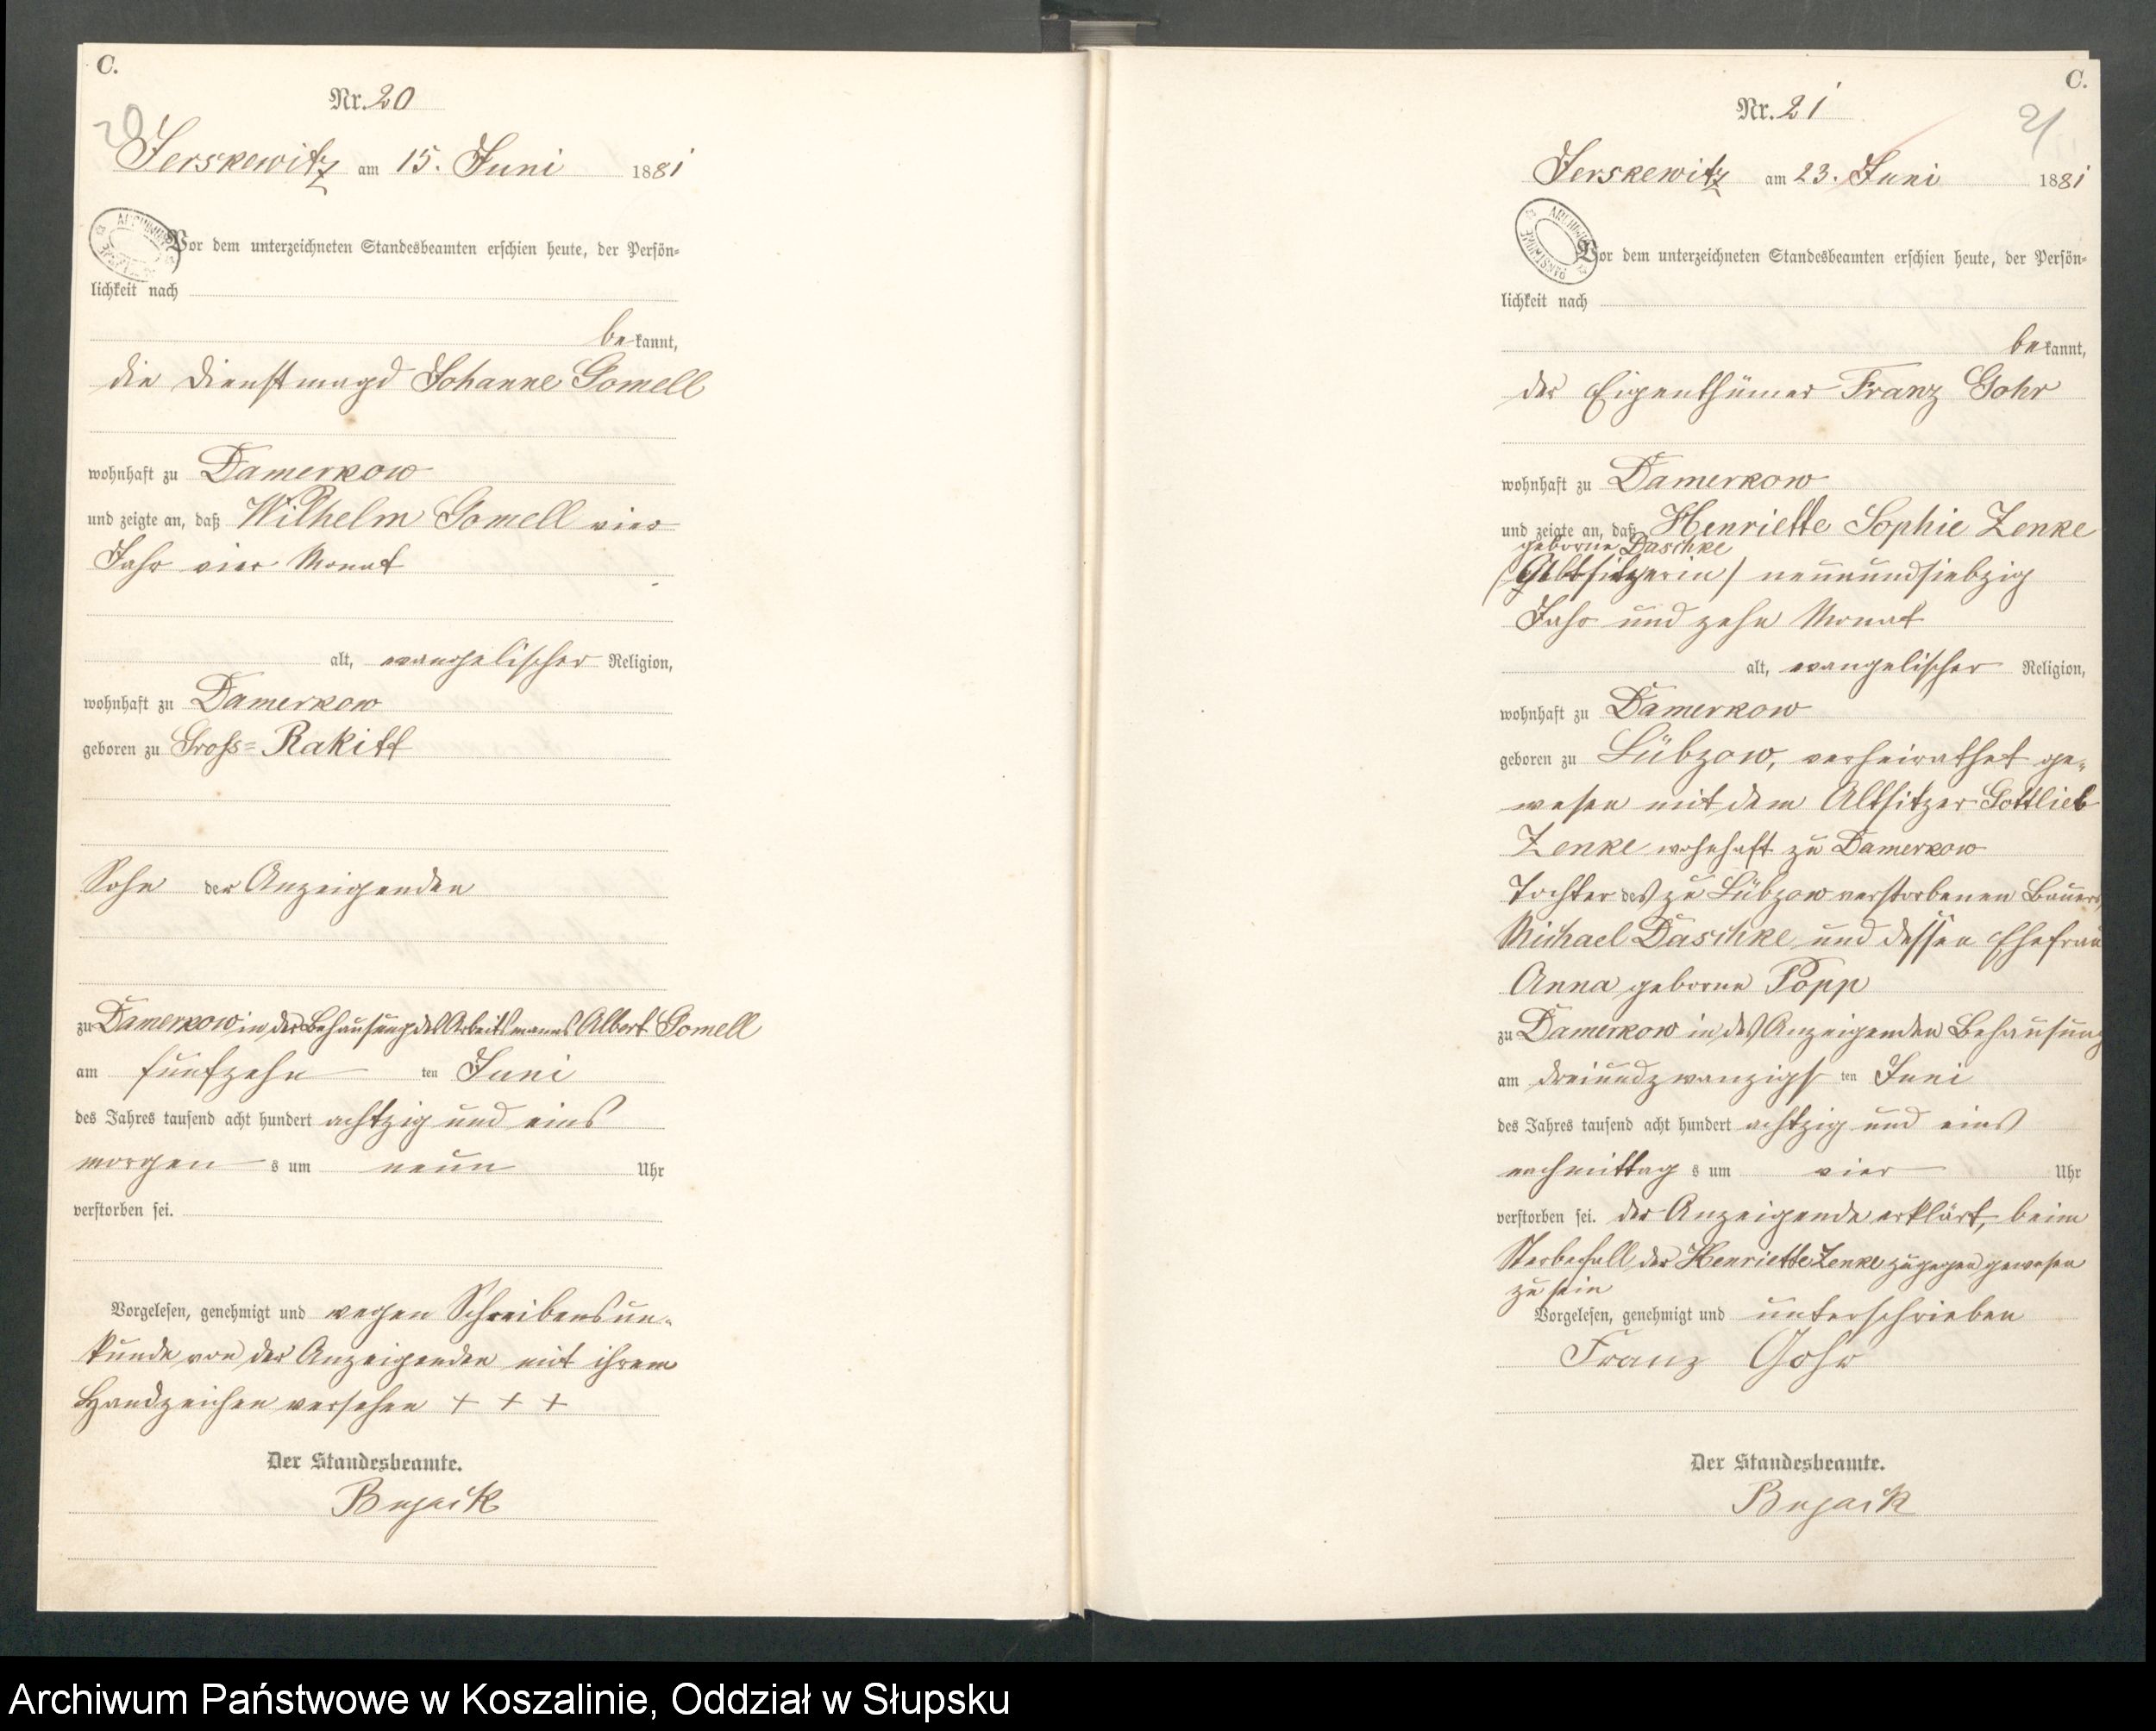 C.
Nr. 20
20
Jerskewitz am 15. Juni 1881
Vor dem unterzeichneten Standesbeamten erschien heute, der Persön=
lichkeit nach
bekannt,
die Dienstmagd Johanne Gomell
wohnhaft zu Damerkow
und zeigte an, daß Wilhelm Gomell vier
Jahr vier Monat
alt, evangelischer Religion,
wohnhaft zu Damerkow
geboren zu Gross=Rakitt
Sohn der Anzeigenden
zu Damerkow in der Behausung des Arbeitsmanns Albert Gomell
am fünfzehn ten Juni
des Jahres tausend acht hundert achtzig und eins
morgen s um neun Uhr
verstorben sei.
Vorgelesen, genehmigt und wegen Schreibensun-
kunde von der Anzeigenden mit ihrem
Handzeichen versehen + + +
Der Standesbeamte.
Bujack
C.
Nr. 21
21
Jerskewitz am 23. Juni 1881
ARCHIWUM PAŃSTWOWE
Vor dem unterzeichneten Standesbeamten erschien heute, der Persön=
lichkeit nach
bekannt,
der Eigenthümer Franz Gohr
wohnhaft zu Damerkow
und zeigte an, daß Henriette Sophie Zenke
geborne Daschke
(Altsitzerin) neunundsiebzig
Jahr und zehn Monat
alt, evangelischer Religion,
wohnhaft zu Damerkow
geboren zu Lübzow, verheirathet ge-
wesen mit dem Altsitzer Gottlieb
Zenke wohnhaft zu Damerkow
Tochter des zu Lübzow verstorbenen Bauers
Michael Daschke und dessen Ehefrau
Anna geborne Popp
zu Damerkow in des Anzeigenden Behausung
am dreiundzwanzigs ten Juni
des Jahres tausend acht hundert achtzig und eins
nachmittag s um vier Uhr
verstorben sei. der Anzeigende erklärt, beim
Sterbefall der Henriette Zenke zugegen gewesen
zu sein
Vorgelesen, genehmigt und unterschrieben
Franz Gohr
Der Standesbeamte.
Bujack
Archiwum Państwowe w Koszalinie, Oddział w Słupsku